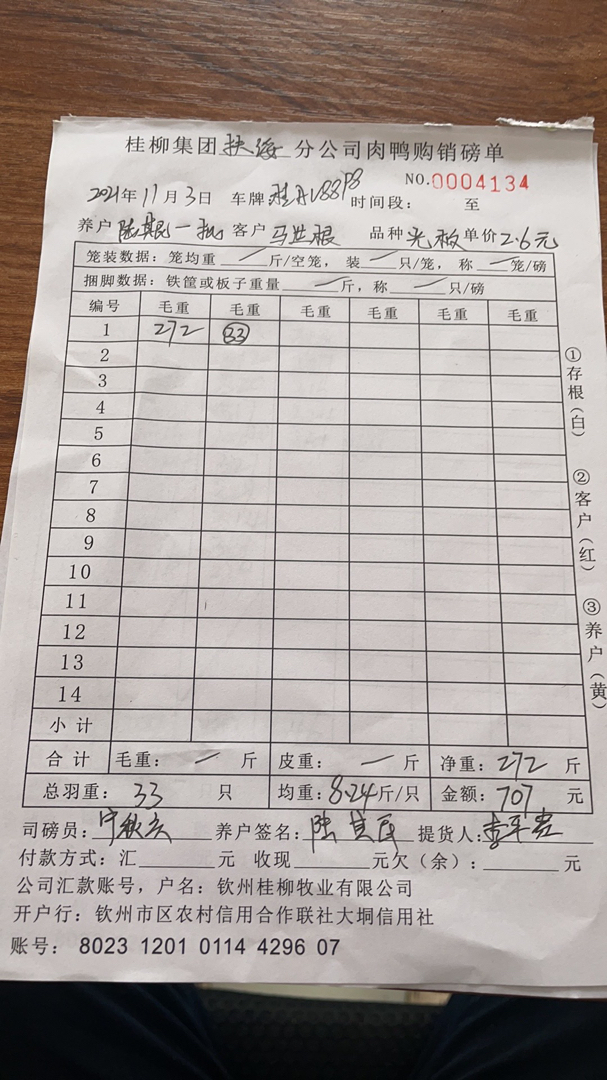 桂柳集团扶绥分公司肉鸭购销磅单
NO.0004134
2021年11月3日 车牌 时间段： 至
养户 一批 客户 马世根 品种 光板 单价2.6元
笼装数据：笼均重 — 斤/空笼，装 — 只/笼，称 — 笼/磅
捆脚数据：铁筐或板子重量 — 斤，称 — 只/磅
编号 毛重 毛重 毛重 毛重 毛重 毛重
1 272 33
2
3
4
5
6
7
8
9
10
11
12
13
14
小计
合计 毛重： — 斤 皮重： — 斤 净重：272 斤
总羽重：33 只 均重：8.24斤/只 金额：707 元
司磅员： 养户签名：陆 提货人：李
付款方式：汇 元 收现 元欠（余）： 元
公司汇款账号，户名：钦州桂柳牧业有限公司
开户行：钦州市区农村信用合作联社大垌信用社
账号： 8023 1201 0114 4296 07
①存根（白）
②客户（红）
③养户（黄）